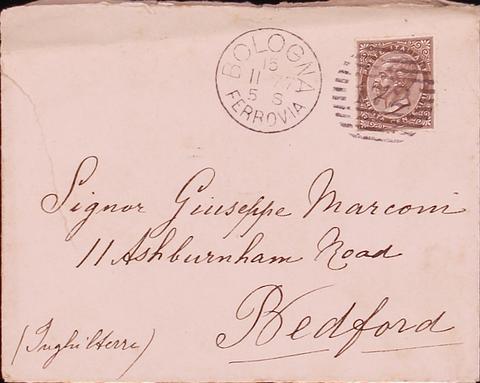 BOLOGNA
15
11 77
5 S
FERROVIA
Signor Giuseppe Marconi
11 Ashburnham Road
Bedford
(Inghilterra)